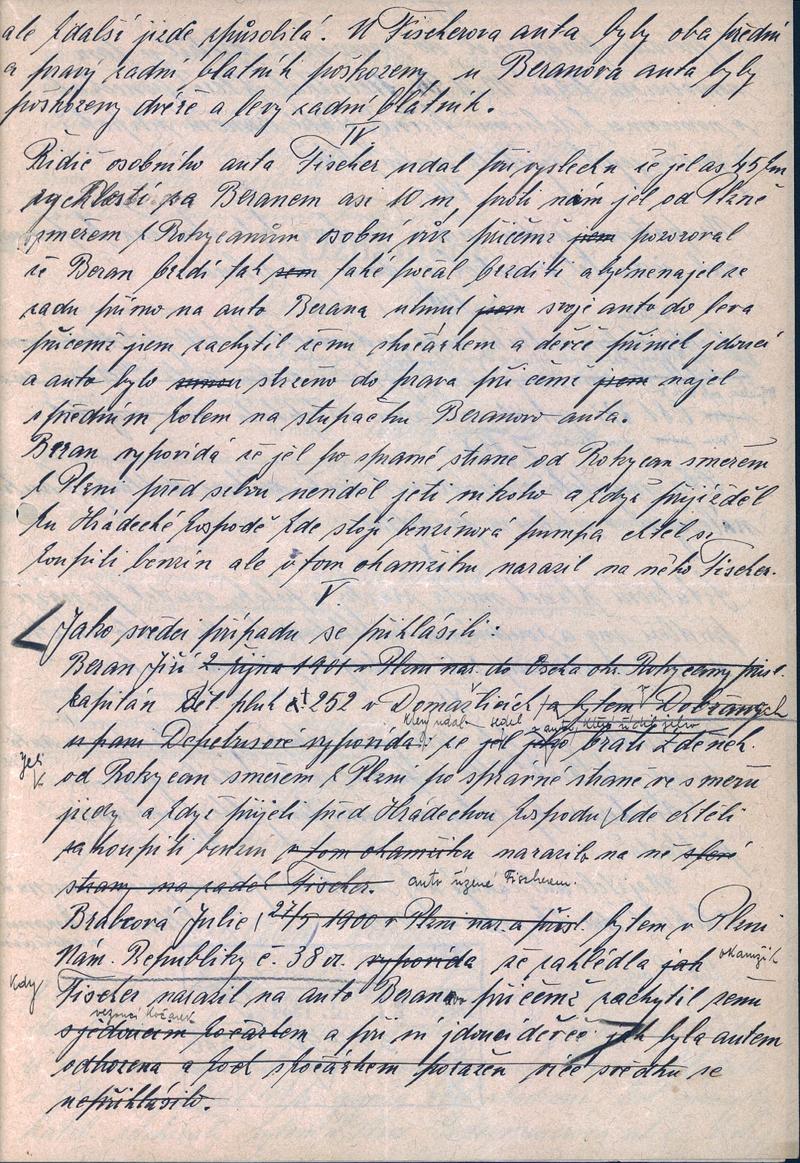 ale k další jízde způsobilá. U Fischerova auta byly oba přední
a pravý zadní blatník poškozeny u Beranova auta byly
poškozeny dvéře a levý zadní blatník.
IV
Řidič osobního auta Fischer udal při výslechu že jel as 45 km
rychlostí za Beranem asi 10 m, proti nim jel od Plzně
směrem k Rokycanům osobní vůz přičemž jsem pozoroval
že Beran brzdí tak sem také počal brzditi abych nenajel ze
zadu přímo na auto Berana uhnul jsem svoje auto do leva
přičemž jsem zachytil ženu s kočárkem a děvče při ní jdoucí
a auto bylo strženo do prava při čemž jsem najel
s předním kolem na stupačku Beranovo auta.
Beran vypovídá že jel po správné straně od Rokycan směrem
k Plzni před sebou neviděl jeti nikoho a když přijížděl
ku Hrádecké hospodě kde stojí benzinová pumpa chtěl si
koupiti benzin ale v tom okamžiku narazil na něho Fischer.
V
Jako svědci případu se přihlásili:
Beran Jiří 2. října 1901 v Plzni nar. do Oseka okr. Rokycany přísl.
kapitán děl. pluk 252 v Domažlicích, a bytem v Dobřanech
který udal sedel v autu, které řídil jeho
u paní Depetrisové vypovídá: že jel jeho bratr Zdeněk.
jeli
od Rokycan směrem k Plzni po správné straně ve směru
jízdy a když přijeli před Hrádeckou hospodu, kde chtěli
zakoupiti benzin v tom okamžiku narazilo na ně
strany na zadek Fischer. auto řízené Fischerem.
Brabcová Julie, 27/5 1900 v Plzni nar. a přísl. bytem v Plzni
Nám. Republiky č. 38 vypovída že zahlédla jak okamžik
kdy
Fischer narazil na auto Beranovo přičemž zachytil ženu
vezoucí kočárek
s jedoucím kočárkem a při ní jdoucí děvče jak byla autem
odhozena a pod s kočárkem poražen více svědku se
nepřihlásilo.